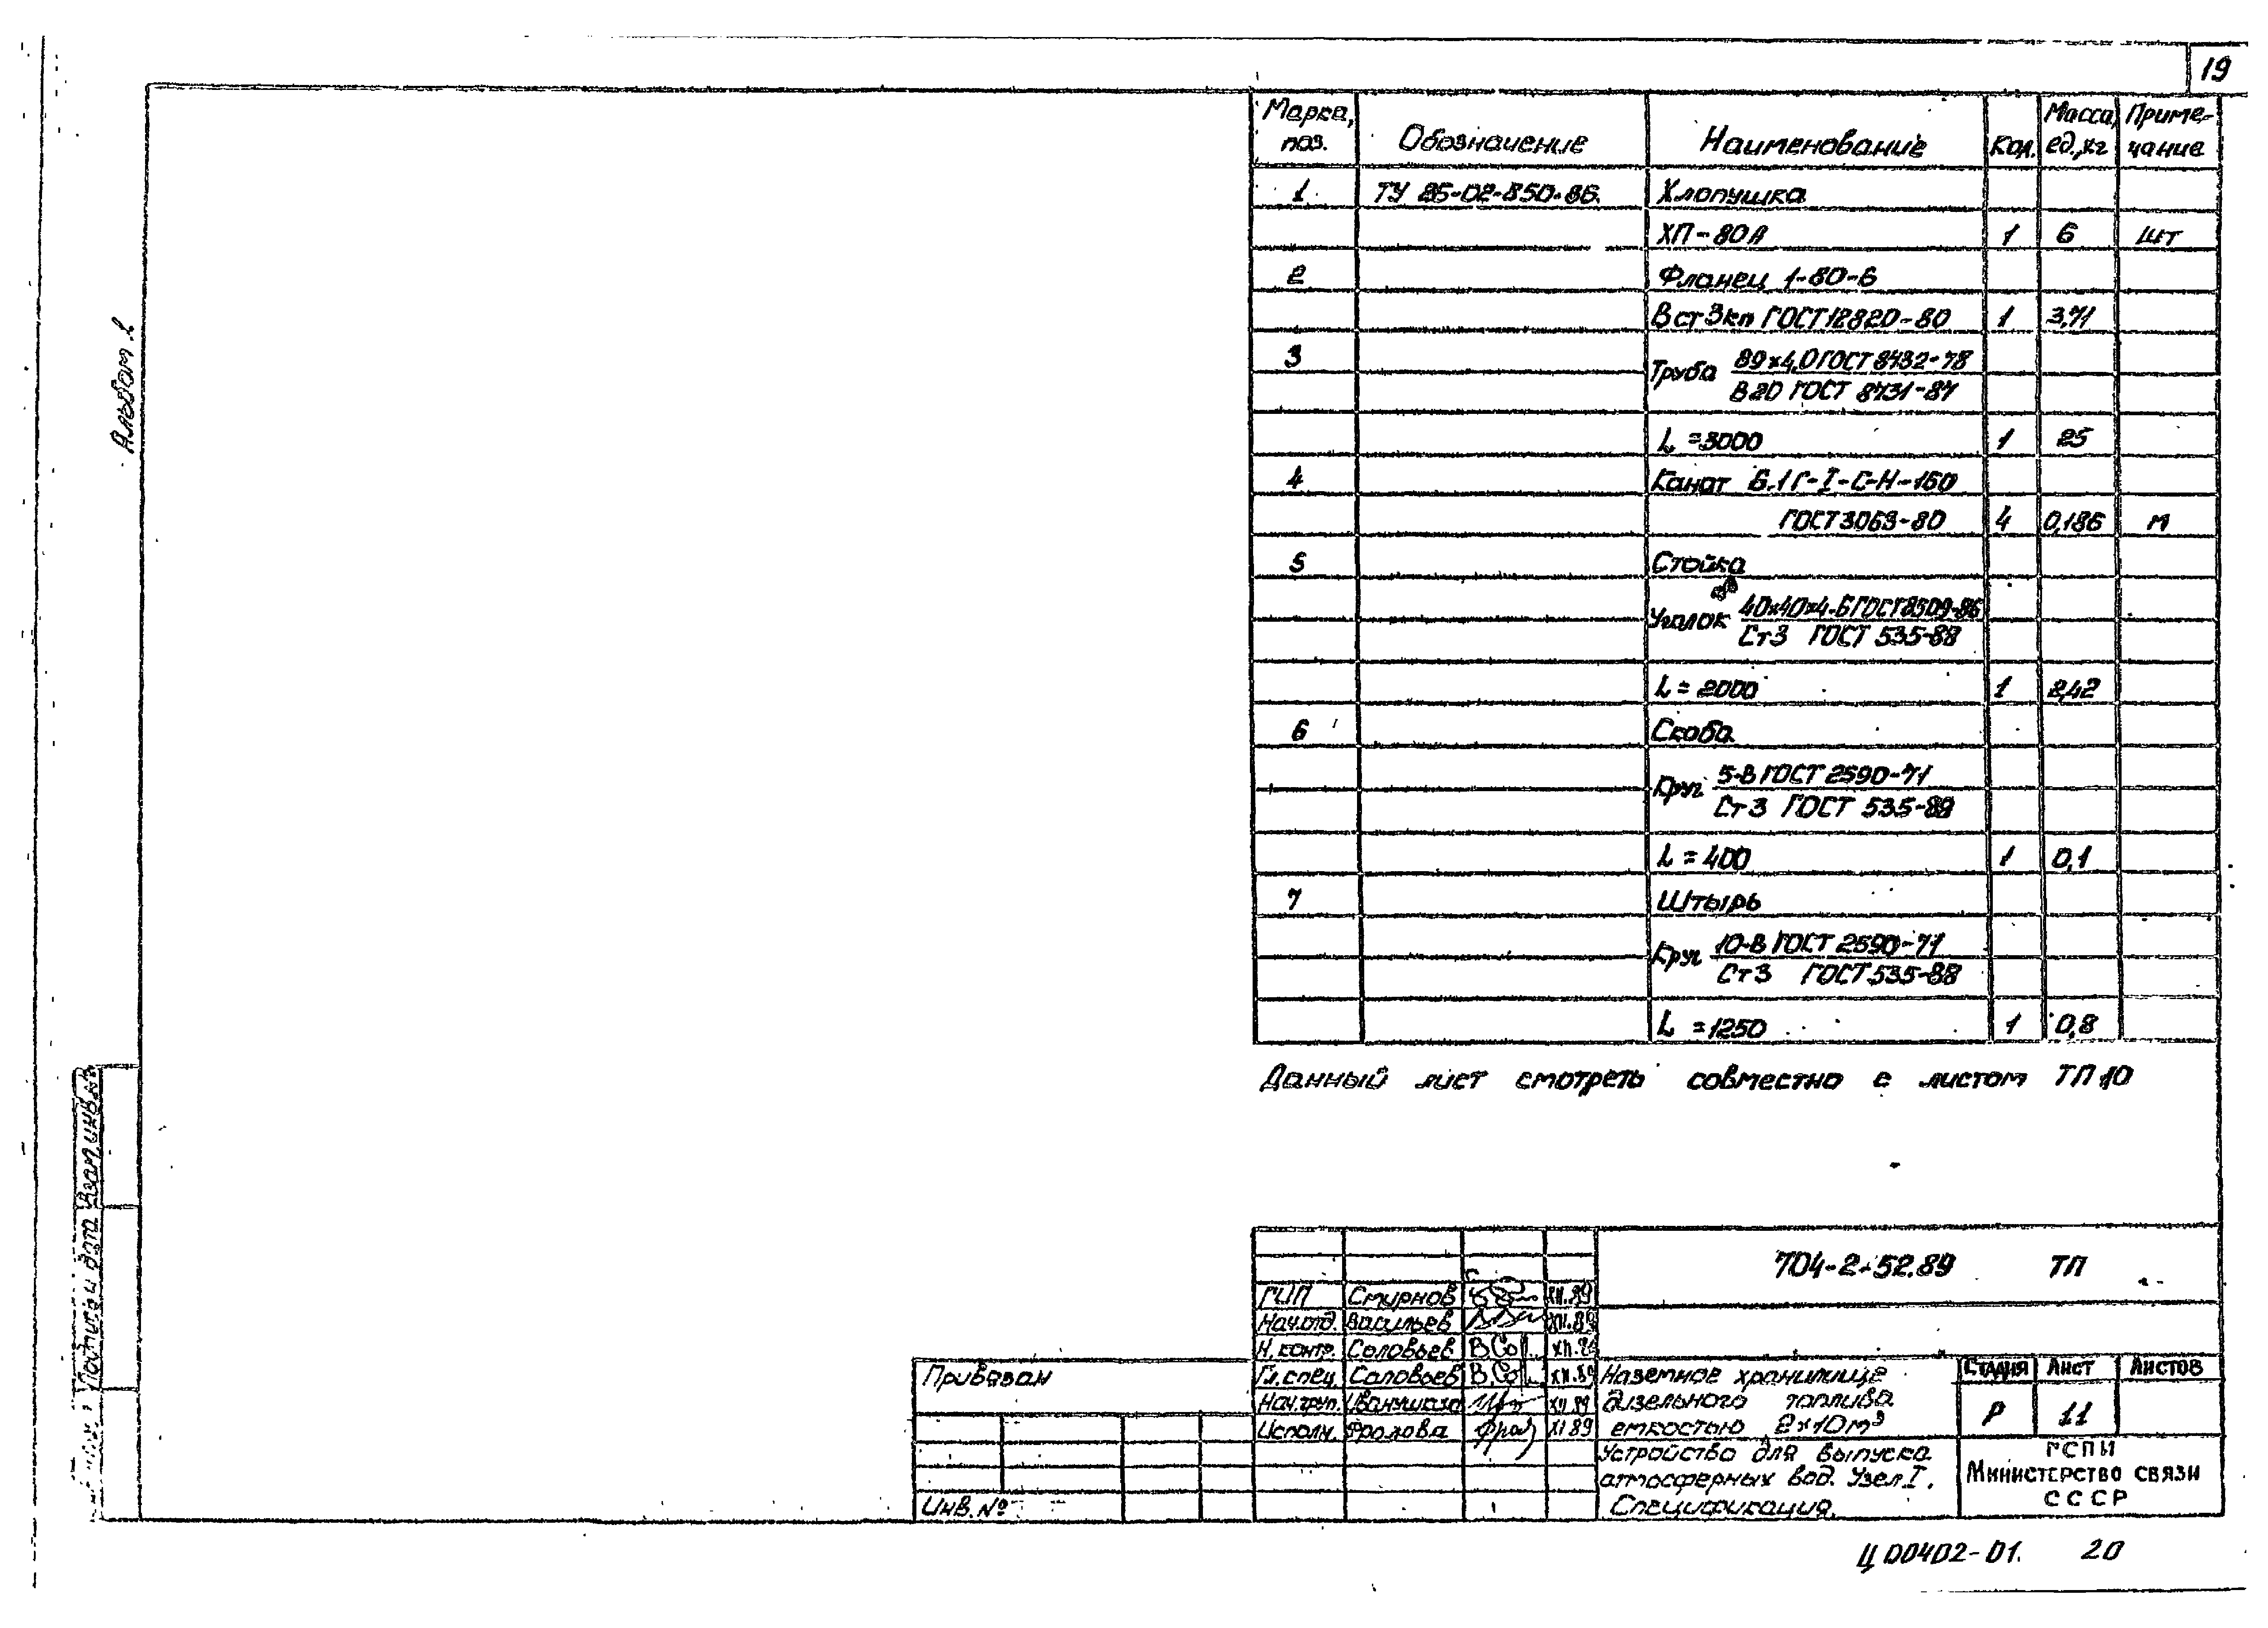 19
Марка, поз. Обозначение Наименование Кол. Масса ед., кг Приме-чание
1 ТУ 25-02-850-86. Хлопушка
ХП-80А 1 6 шт
2 Фланец 1-80-6
В ст 3 кп ГОСТ 12820-80 1 3,71
3 Труба 89х4,0 ГОСТ 8732-78
В20 ГОСТ 8731-87
L=3000 1 25
4 Канат 6.1 Г-I-С-Н-160
ГОСТ 3063-80 4 0,186 м
5 Стойка
Уголок 40х40х4-Б ГОСТ 8509-86
Ст3 ГОСТ 535-88
L=2000 1 2,42
6 Скоба
Круг 5-В ГОСТ 2590-71
Ст3 ГОСТ 535-88
L=400 1 0,1
7 Штырь
Круг 10-В ГОСТ 2590-71
Ст3 ГОСТ 535-88
L=1250 1 0,8
Данный лист смотреть совместно с листом ТП 10
Альбом 1
Взам. инв. №
Подпись и дата
704-2-52.89 ТП
ГИП Смирнов XII.89
Нач.отд. Васильев XII.89
Н. контр. Соловьев В.Сол XII.89
Гл.спец. Соловьев В.Сол XII.89
Нач.груп. Иванушкина XII.89
Исполн. Фролова Фрол XI 89
Привязан
Инв. №
Наземное хранилище
дизельного топлива
емкостью 2х10м³
Устройство для выпуска
атмосферных вод. Узел I.
Спецификация.
Стадия Лист Листов
Р 11
ГСПИ
Министерство связи
СССР
Ц 00402-01. 20